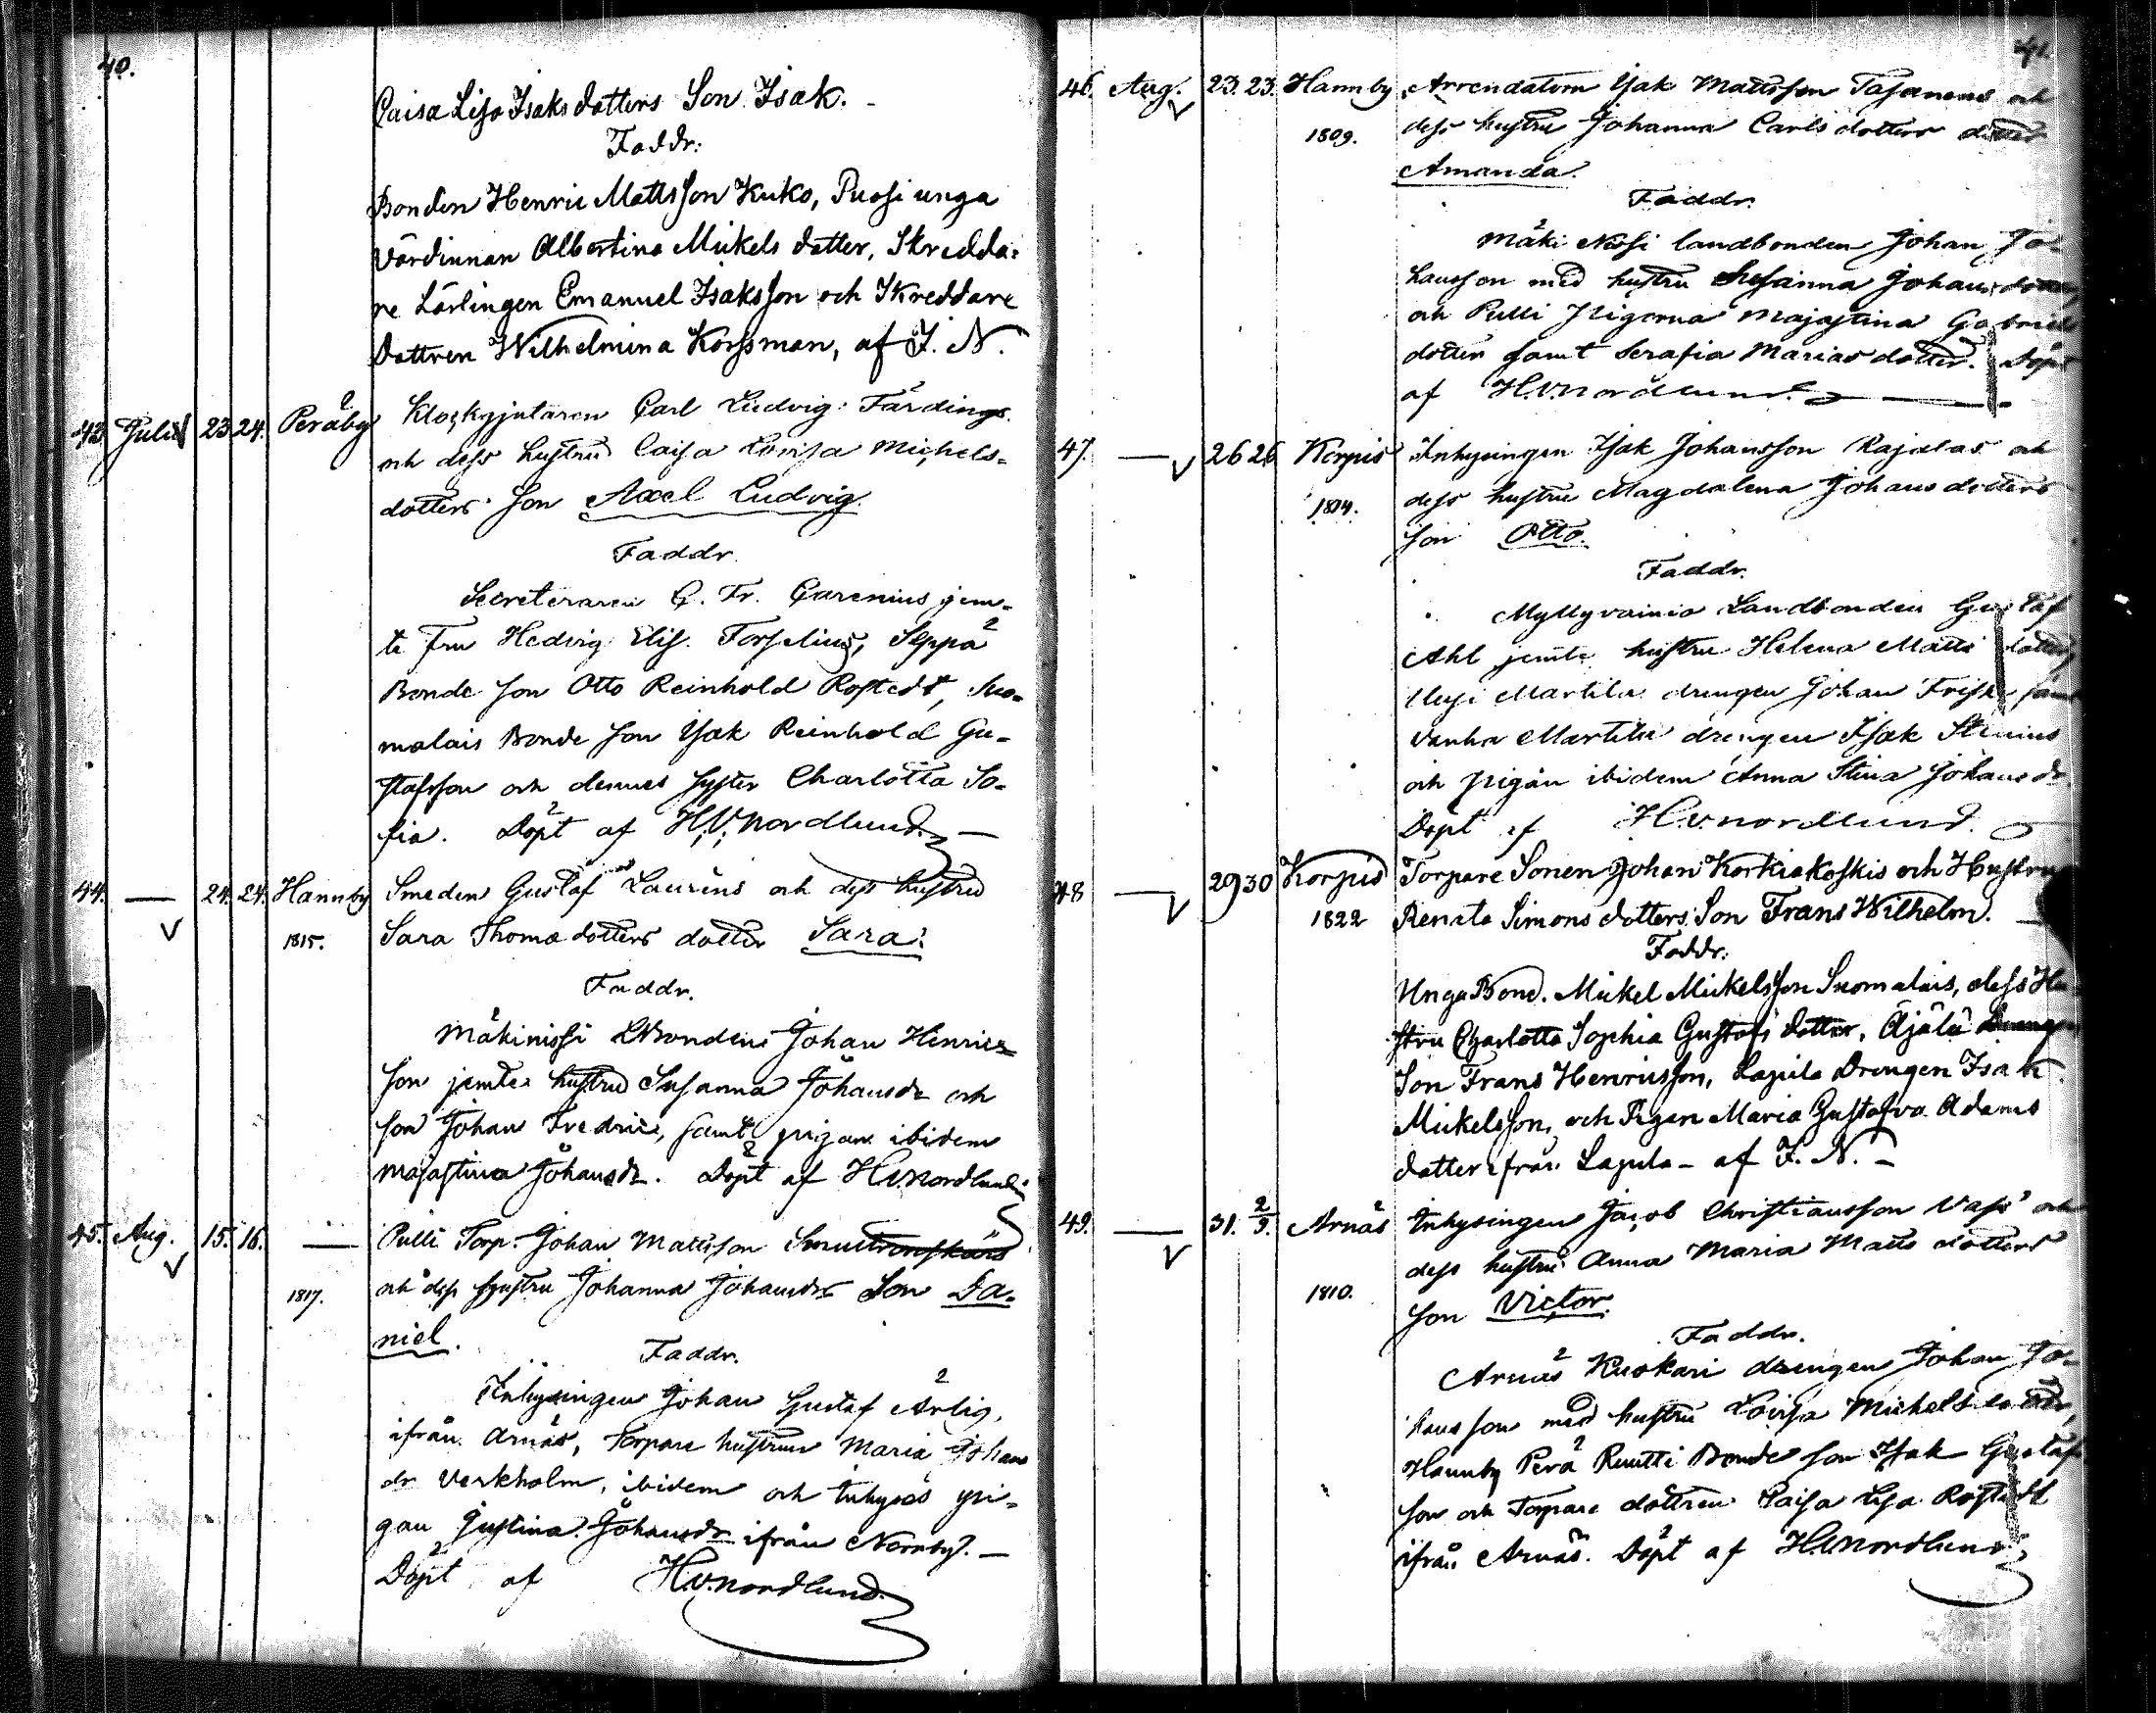 40.
Caisa Lisa Isaks dotters Son Isak. -
Faddr:
Bonden Henric Mattsson Kuko, Puosi unga
Värdinnan Albertina Mickels dotter, Skredda-
re Lärlingen Emanuel Isaksson och Skreddare
Dottren Wilhelmina Korssman, af J. N.
43 Julii 23 24. Peråby Klockgjutaren Carl Ludvig Färdings
och dess hustru Caisa Lovisa Michels-
dotters son Axel Ludvig.
Faddr.
Secreteraren G. Fr. Garenius jem-
te Fru Hedvig Elis. Forselius, Seppä
Bonde son Otto Reinhold Rostedt, Suo-
malais Bonde son Isak Reinhold Gu-
stafsson och dennes syster Charlotta So-
fia. Döpt af H.V. Nordlund. -
44. — 24. 24. Hannby Smeden Gustaf Lauréns och dess hustru
1815. Sara Thomæ dotters dotter Sara.
Faddr.
Mäkinissi LBonden Johan Henrics-
son jemte hustru Susanna Johansdr och
son Johan Fredric, samt pigan ibidem
Majastina Johansdr. Döpt af H.V. Nordlund
45. Aug. 15. 16. — Pulli Torp. Johan Mattsson
och dess hustru Johanna Johansdrs Son Da-
1817.
niel.
Faddr.
Inhysingen Johan Gustaf Ärlig,
ifrån Arnäs, Torpare hustrun Maria Johans
dr Verkholm, ibidem och Inhyses pi-
gan Justina Johansdr ifrån Norrby. -
Döpt af H.V. Nordlund.
41.
46. Aug. 23. 23. Hannby Arrendatorn Isak Mattsson Tasanens och
1809. dess hustru Johanna Carlsdotters dotter
Amanda.
Faddr.
Mäki Nissi landbonden Johan Jo-
hansson med hustru Susanna Johansdotter,
och Pulli Pigorna Majastina Gabriels
dotter samt Serafia Mariasdotter. Döpt
af H.V. Nordlund.
47. — 26 26 Korpis Inhysingen Isak Johansson Rajalas och
1814. dess hustru Magdalena Johansdotters
son Otto.
Faddr.
Myllyvainio Landbonden Gustaf
Ahl jemte hustru Helena Matts dotter,
Uusi Martila drengen Johan Frisk samt
Vanha Martila drengen Isak Stenius
och pigan ibidem Anna Stina Johansdr
Döpt af H.V. Nordlund.
48 — 29 30 Korpis Torpare Sonen Johan Korkiakoskis och Hustru
1822 Renata Simons dotters Son Frans Wilhelm.
Faddr:
Unga Bond. Mickel Mickelsson Suomalais, dess Hu-
stru Charlotta Sophia Gustafs dotter, Äjälä
Son Frans Henricsson, Lapila Drengen Isak
Mickelsson, och Pigan Maria Gustafva Adams
dotter ifrån Lapila - af J. N. -
49. — 31. 2/9. Arnäs Inhysingen Jacob Christiansson Vass' och
dess hustru Anna Maria Matts dotters
1810.
son Victor.
Faddr.
Arnäs Kuokari drengen Johan Jo-
hansson med hustru Lovisa Michelsdotter,
Hannby Perä Ruutti Bonde son Isak Gustaf
son och Torpare dottren Caisa Lisa Rostedt
ifrån Arnäs. Döpt af H.V. Nordlund